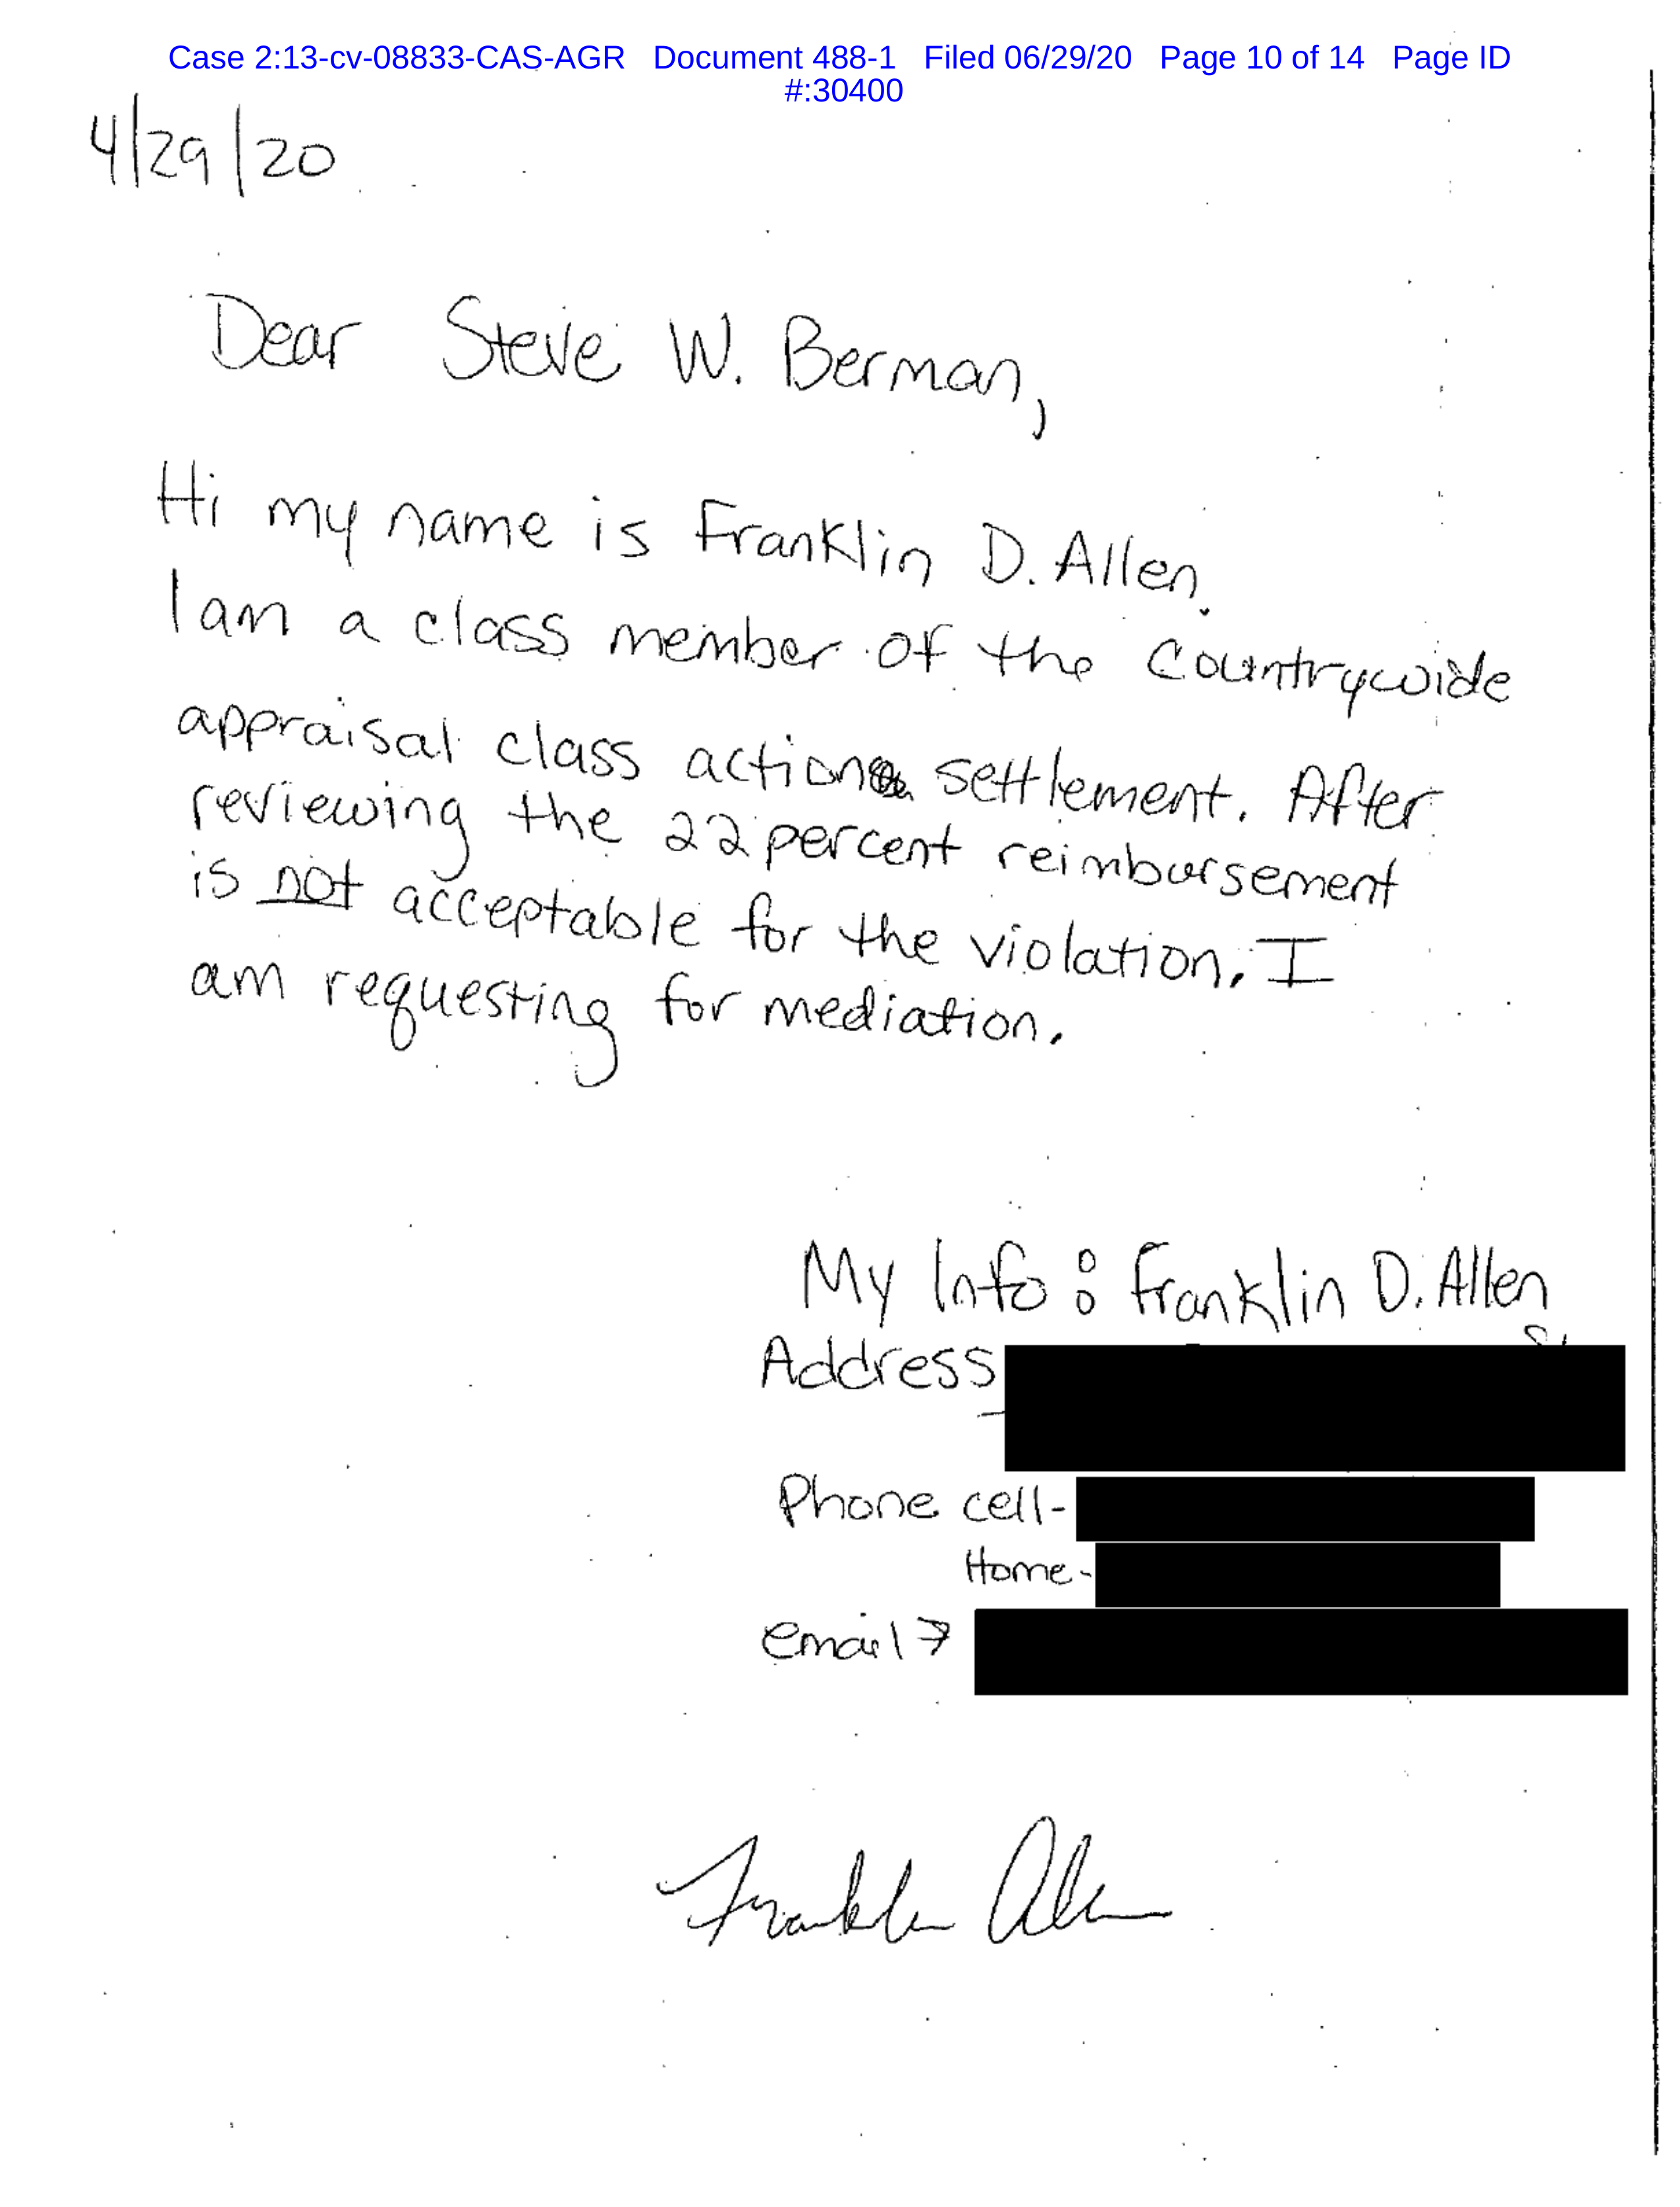 Case 2:13-cv-08833-CAS-AGR Document 488-1 Filed 06/29/20 Page 10 of 14 Page ID
#:30400
4/29/20
Dear Steve W. Berman,
Hi my name is Franklin D. Allen.
I am a class member of the Countrywide
appraisal class action settlement. After
reviewing the 22 percent reimbursement
is not acceptable for the violation. I
am requesting for mediation.
My Info: Franklin D. Allen
Address
Phone cell-
Home-
email→
Franklin Allen